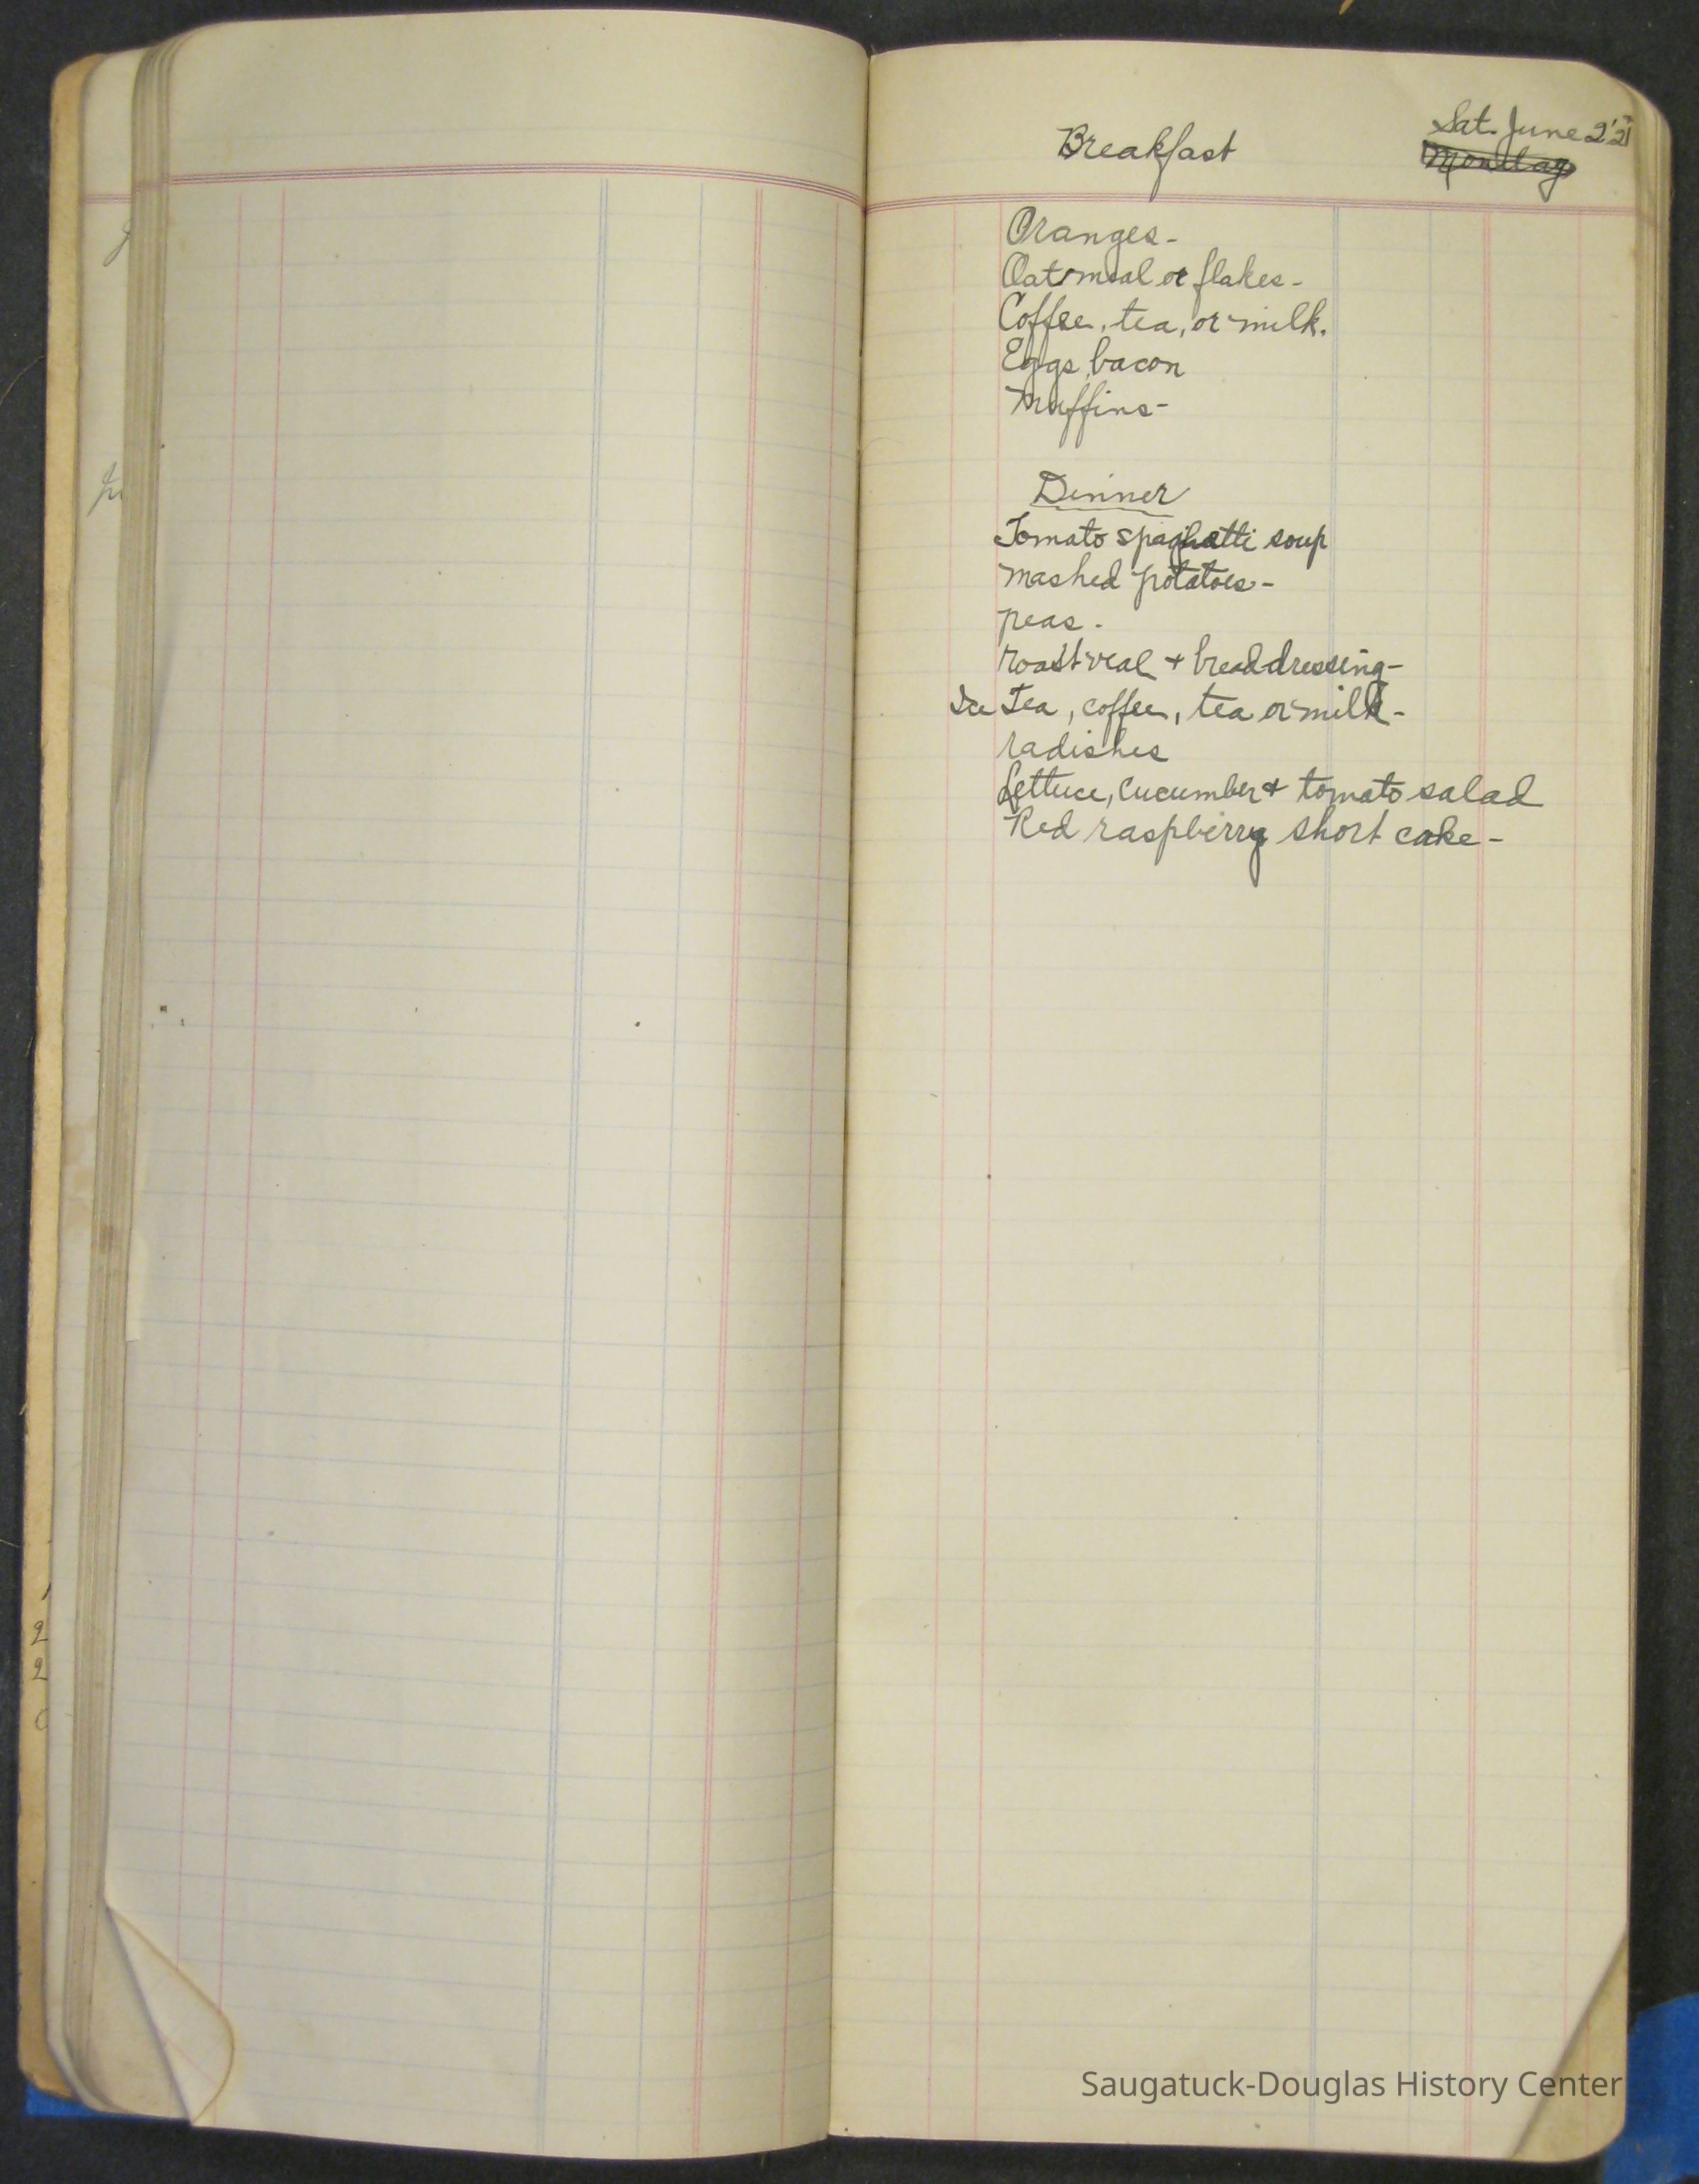 Breakfast
Sat. June 2'21
Monday
Oranges-
Oatmeal or flakes-
Coffee, tea, or milk.
Eggs, bacon
Muffins-
Dinner
Tomato spaghetti soup
mashed potatoes-
peas-
roast veal + bread dressing-
Ice Tea, coffee, tea or milk-
radishes
Lettuce, cucumber + tomato salad
Red raspberry short cake-
2
2
Saugatuck-Douglas History Center